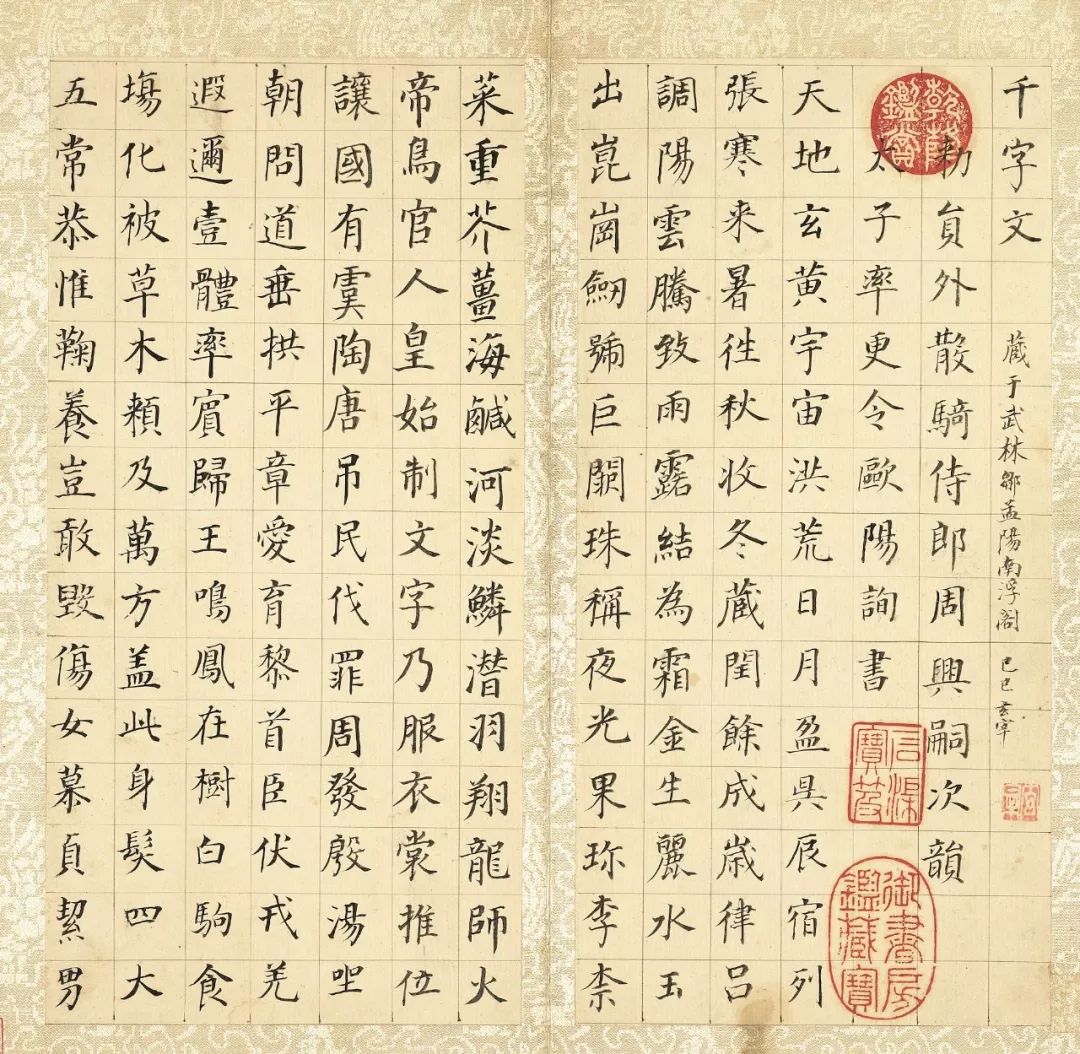 千字文
藏于武林鄒孟陽南浮閣 己巳玄宰
勅員外散騎侍郎周興嗣次韻
太子率更令歐陽詢書
天地玄黄宇宙洪荒日月盈昃辰宿列
張寒来暑往秋收冬藏閏餘成嵗律吕
調陽雲騰致雨露結為霜金生麗水玉
出崑崗劒號巨闕珠稱夜光果珎李柰
菜重芥薑海鹹河淡鱗潛羽翔龍師火
帝鳥官人皇始制文字乃服衣裳推位
讓國有虞陶唐吊民伐罪周發殷湯坐
朝問道垂拱平章愛育黎首臣伏戎羌
遐邇壹體率賓歸王鳴鳳在樹白駒食
塲化被草木頼及萬方盖此身髮四大
五常恭惟鞠養豈敢毀傷女慕貞絜男
乾隆鑑賞
石渠寶笈
御書房鑑藏寶